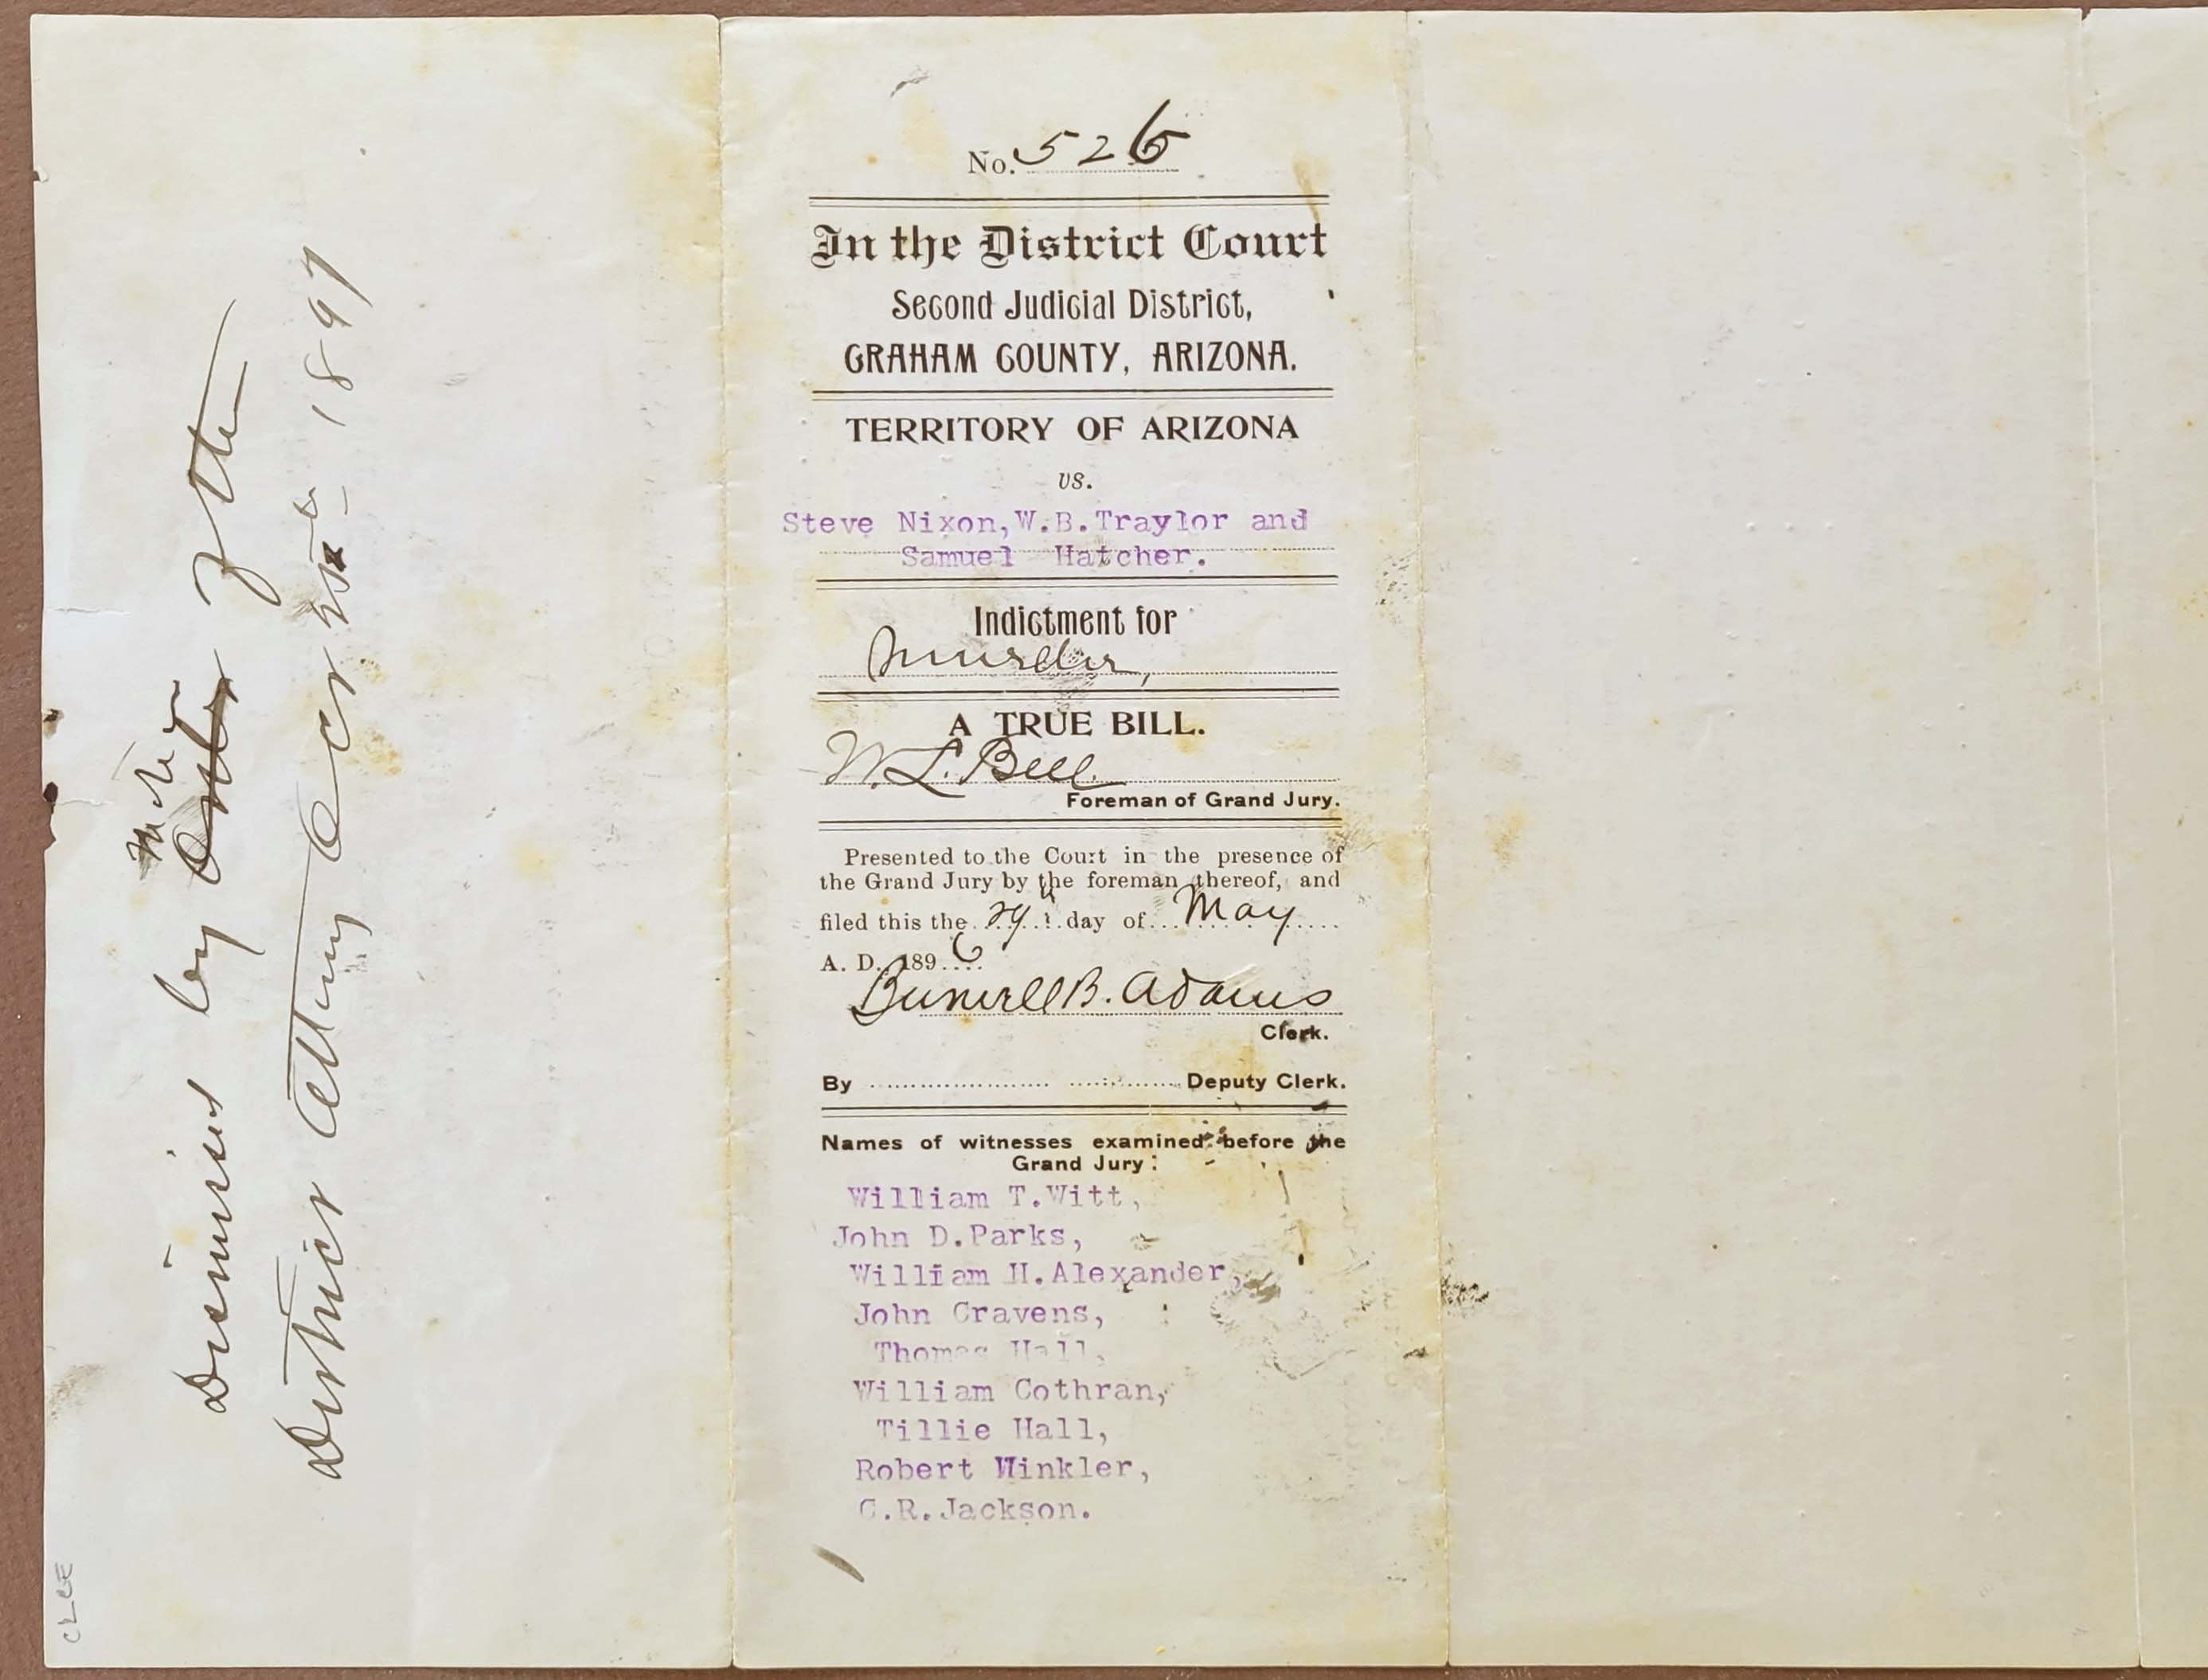 Dismiss by motion of the
District Attorney Oct 1897
No. 526
In the District Court
Second Judicial District,
GRAHAM COUNTY, ARIZONA.
TERRITORY OF ARIZONA
vs.
Steve Nixon, W.B.Traylor and
Samuel Hatcher.
Indictment for
Murder,
A TRUE BILL.
W. L. Bell.
Foreman of Grand Jury.
Presented to the Court in the presence of
the Grand Jury by the foreman thereof, and
filed this the 29th day of May
A. D. 1896
Burwell B. Adams
Clerk.
By Deputy Clerk.
Names of witnesses examined before the
Grand Jury:
William T.Witt,
John D.Parks,
William H.Alexander,
John Cravens,
Thomas Hall,
William Cothran,
Tillie Hall,
Robert Winkler,
C.R.Jackson.